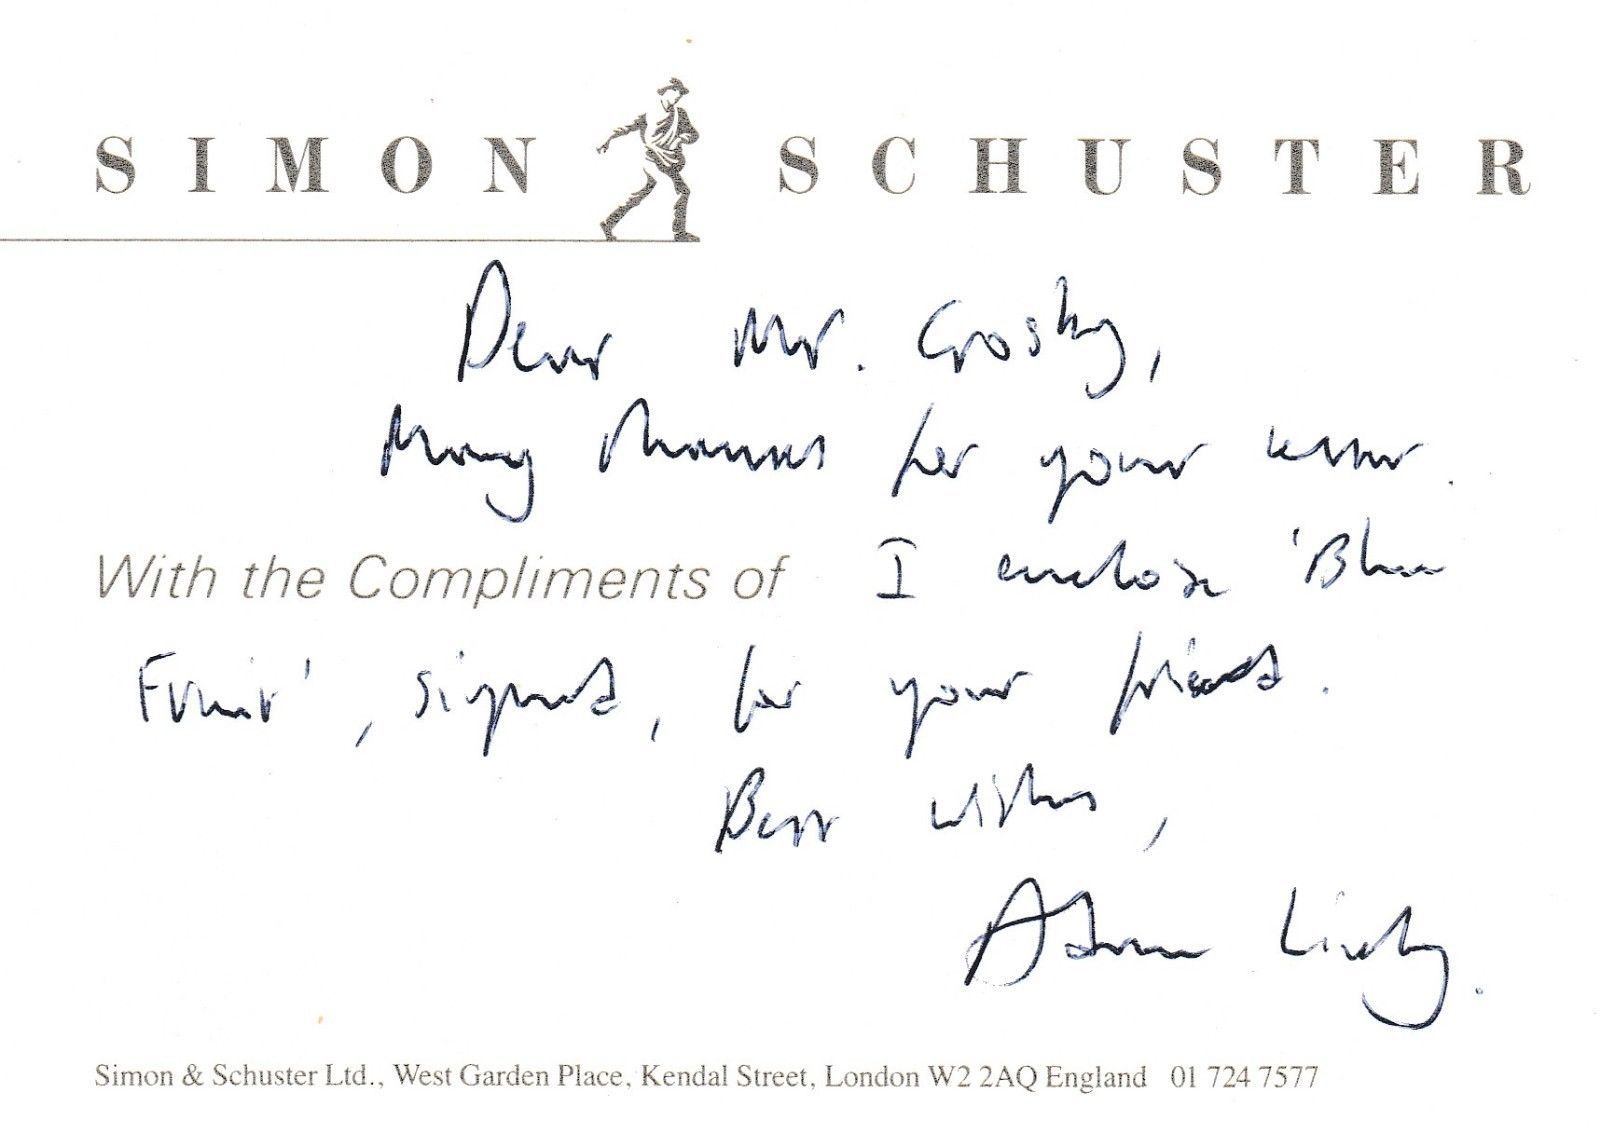 SIMON SCHUSTER
Dear Mr. Crosby,
Many thanks for your letter.
With the Compliments of I enclose 'Blue
Fruit', signed, for your friend.
Best wishes,
Adam Lively.
Simon & Schuster Ltd., West Garden Place, Kendal Street, London W2 2AQ England 01 724 7577